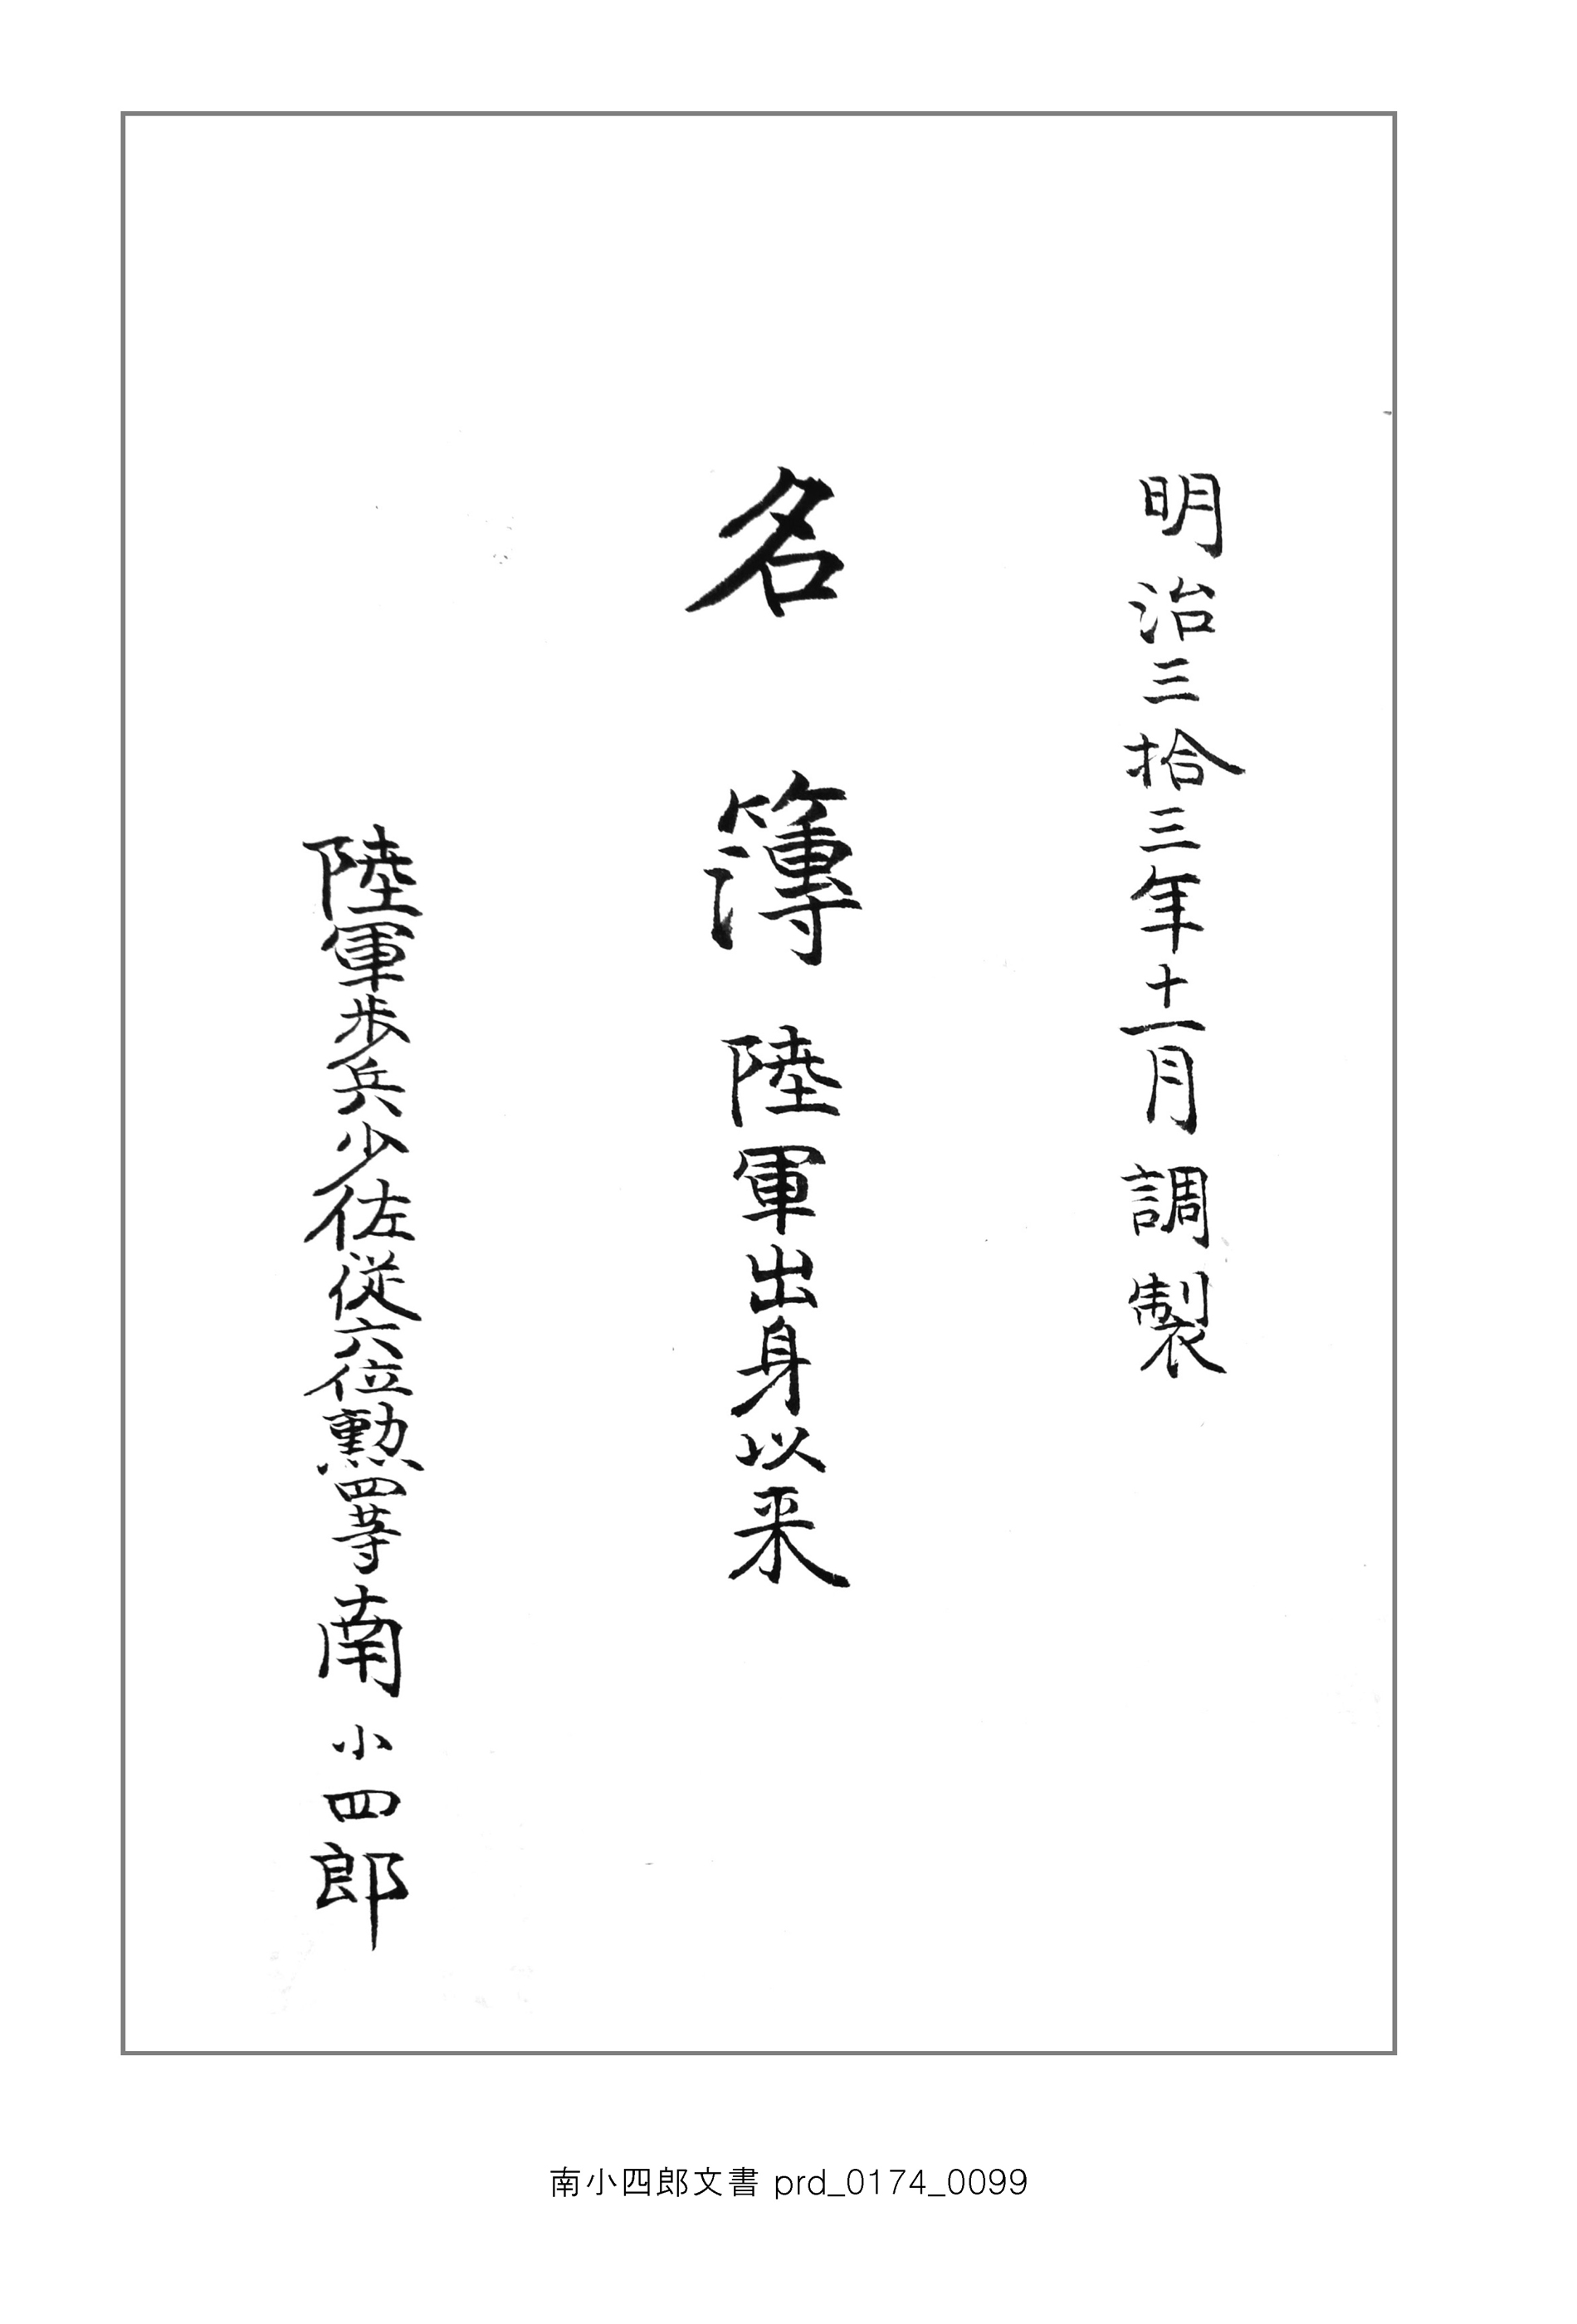 明治三拾三年十一月調製
名簿 陸軍出身以来
陸軍歩兵少佐従六位勲四等南小四郎
南小四郎文書 prd_0174_0099